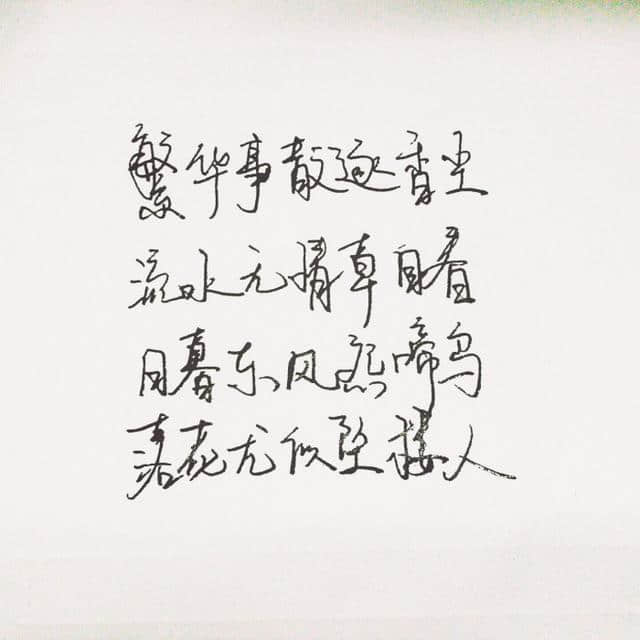 繁华事散逐香尘
流水无情草自春
日暮东风怨啼鸟
落花尤似坠楼人